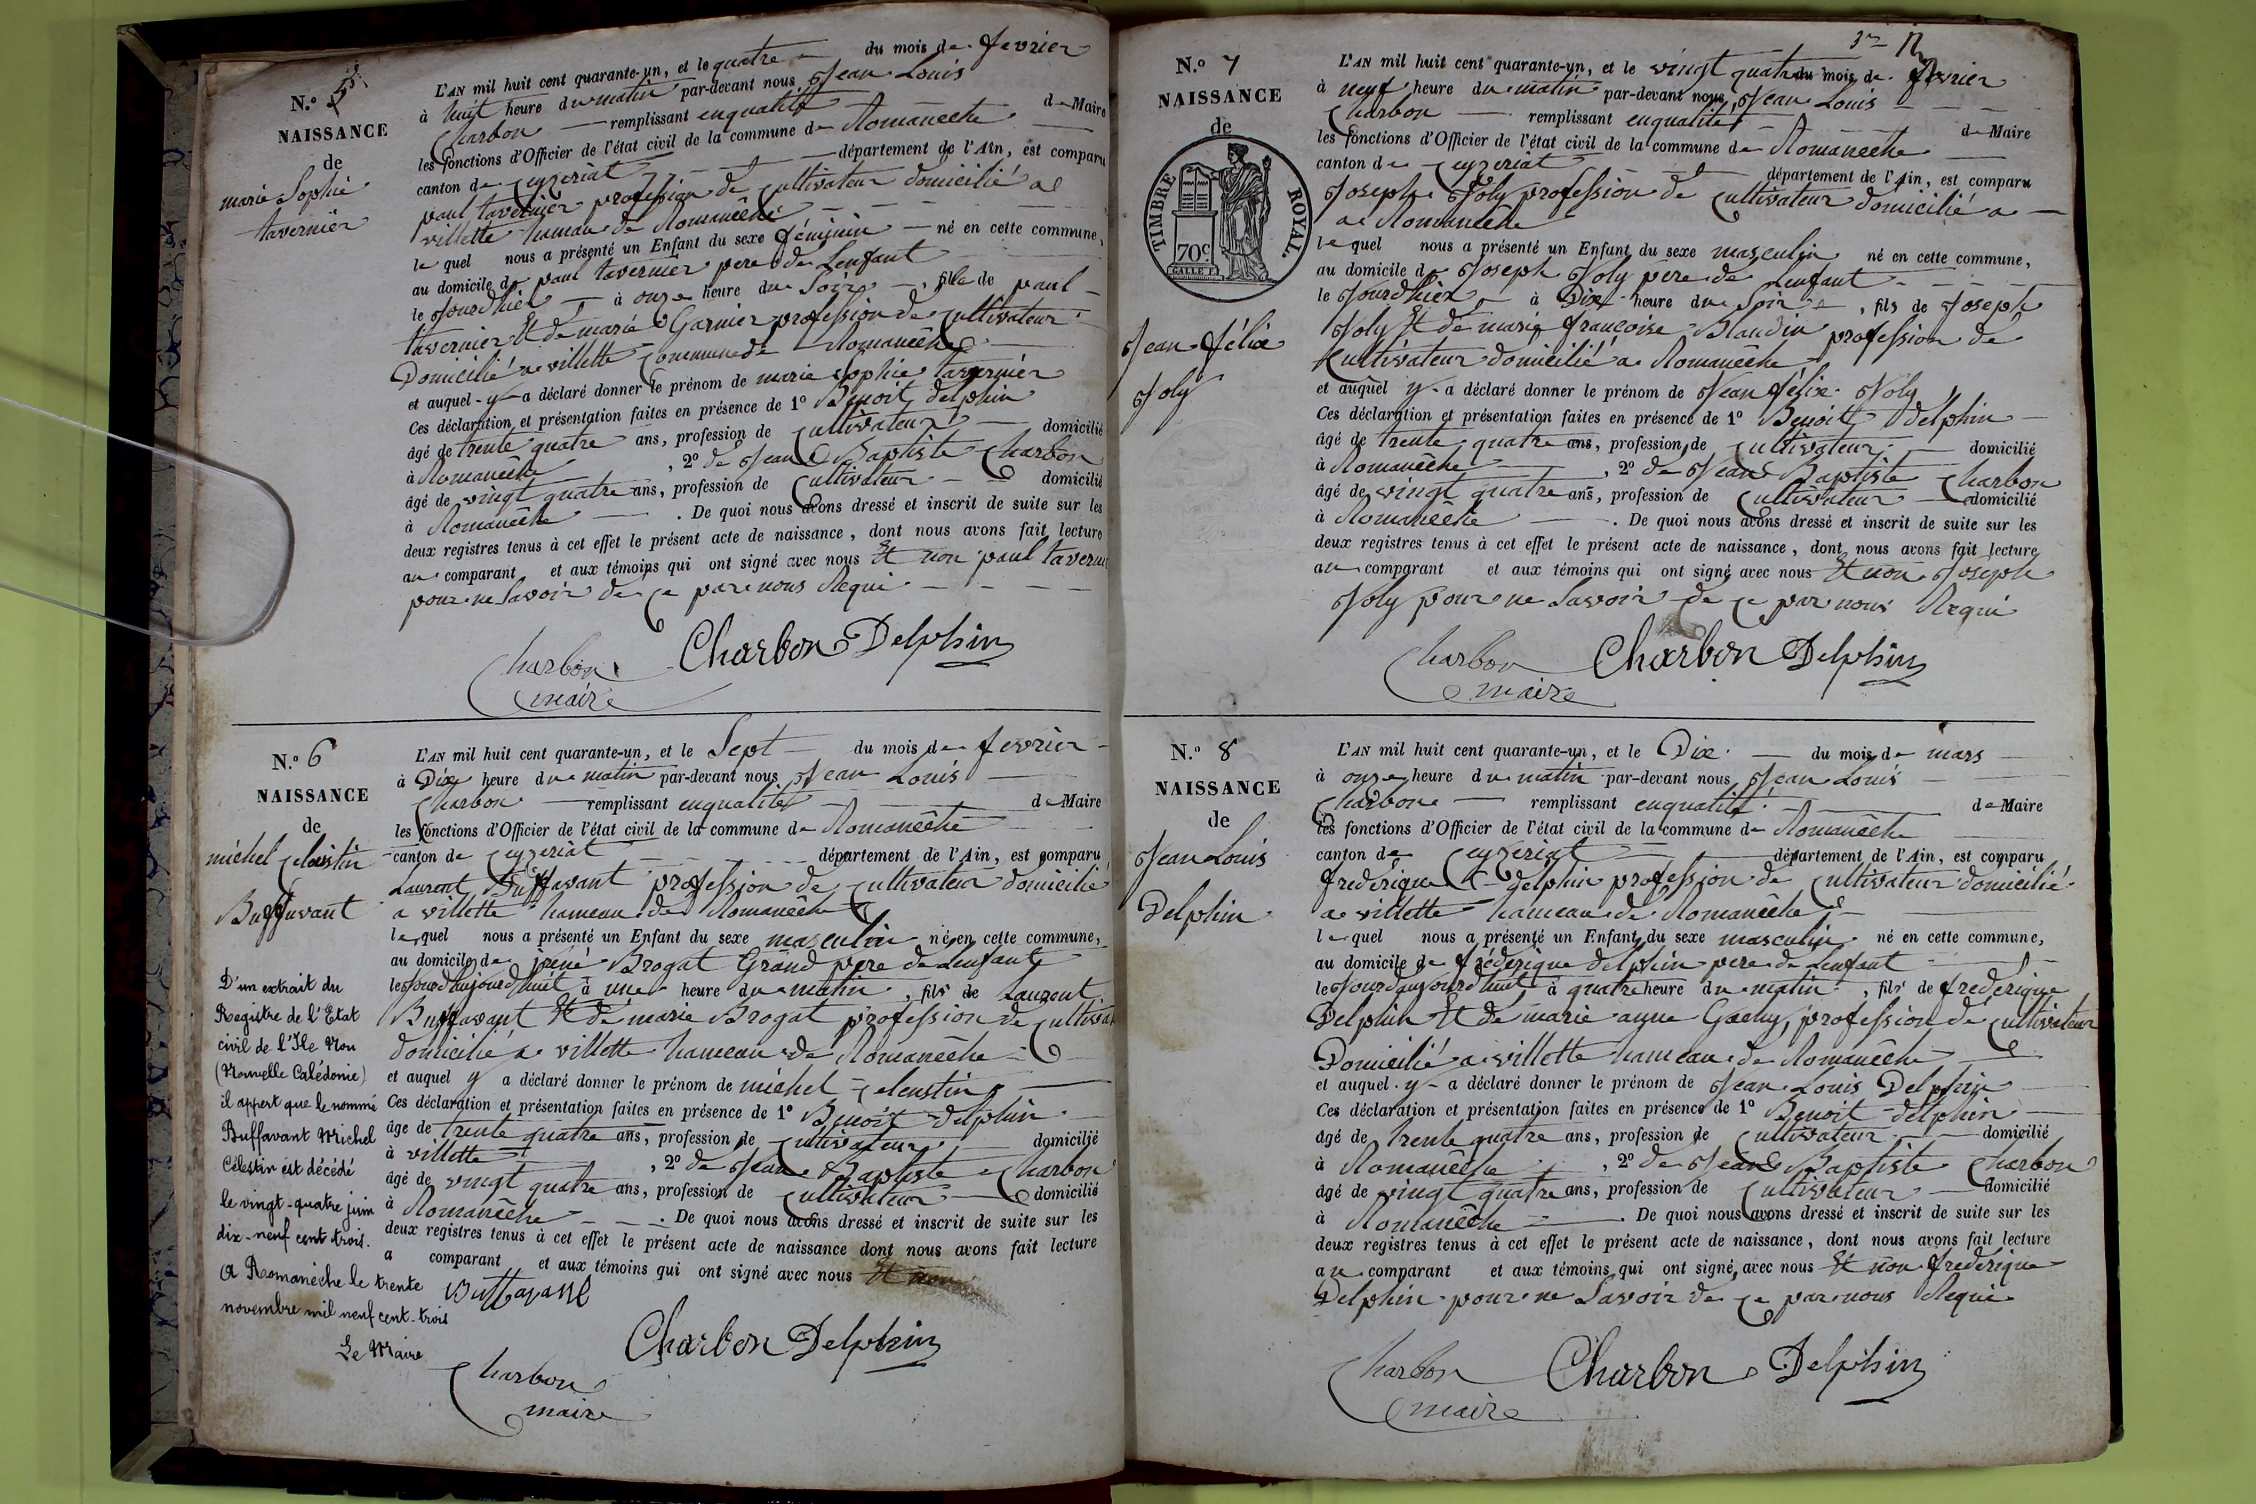 N.o 5
NAISSANCE
de
marie Sophie
tavernier
L'AN mil huit cent quarante-un, et le quatre du mois de fevrier
à huit heure du matin par-devant nous Jean Louis
Charbon remplissant enqualité de Maire
les fonctions d'Officier de l'état civil de la commune de Romanêche
canton de Ceyzeriat département de l'Ain, est comparu
paul tavernier profession de Cultivateur domicilié a
villette hameau de Romanêche
le quel nous a présenté un Enfant du sexe féminin né en cette commune,
au domicile de paul tavernier pere de Lenfant
le Jourdhier à onze heure du Soir, fille de paul
tavernier Et de marie Garnier profession de Cultivateur
Domicilié a villette Commune de Romanêche
et auquel y a déclaré donner le prénom de marie Sophie tavernier
Ces déclaration et présentation faites en présence de 1o Benoit delphin
âgé de trente quatre ans, profession de Cultivateur domicilié
à Romanêche, 2o de Jean Baptiste Charbon
âgé de vingt quatre ans, profession de Cultivateur domicilié
à Romanêche. De quoi nous avons dressé et inscrit de suite sur les
deux registres tenus à cet effet le présent acte de naissance, dont nous avons fait lecture
au comparant et aux témoins qui ont signé avec nous Et non paul taverni
pour ne Savoir de Ce par nous Requi
Charbon Charbon Delphin
maire
N.o 6
NAISSANCE
de
michel Celestin
Buffavant
D'un extrait du
Registre de l'Etat
civil de l'Ile Nou
(Nouvelle Calédonie)
il appert que le nommé
Buffavant Michel
Célestin est décédé
le vingt-quatre juin
dix-neuf cent trois.
A Romanèche le trente
novembre mil neuf cent-trois
Le Maire
L'AN mil huit cent quarante-un, et le Sept du mois de fevrier
à Dix heure du matin par-devant nous Jean Louis
Charbon remplissant enqualité de Maire
les fonctions d'Officier de l'état civil de la commune de Romanêche
canton de Ceyzeriat département de l'Ain, est comparu
Laurent Buffavant profession de Cultivateur domicilié
a villette hameau de Romanêche
le quel nous a présenté un Enfant du sexe masculin né en cette commune,
au domicile de irené Brogat Grand pere de Lenfant
le Jourdaujourdhuit à une heure du matin, fils de Laurent
Buffavant Et de marie Brogat profession de Cultivat
domicilié a villette hameau de Romanêche
et auquel y a déclaré donner le prénom de michel Celeustin
Ces déclaration et présentation faites en présence de 1o Benoit delphin
âge de trente quatre ans, profession de Cultivateur domicilié
à villette, 2o de Jean Baptiste Charbon
âgé de vingt quatre ans, profession de Cultivateur domicilié
à Romanêche. De quoi nous avons dressé et inscrit de suite sur les
deux registres tenus à cet effet le présent acte de naissance dont nous avons fait lecture
a comparant et aux témoins qui ont signé avec nous Et non
Buffavant
Charbon Delphin
Charbon
maire
3me
N.o 7
NAISSANCE
de
TIMBRE ROYAL.
70c.
Jean félix
Joly
L'AN mil huit cent quarante-yn, et le vingt quatre du mois de fevrier
à neuf heure du matin par-devant nous, Jean Louis
Charbon remplissant enqualité de Maire
les fonctions d'Officier de l'état civil de la commune de Romanêche
canton de Ceyzeriat département de l'Ain, est comparu
Joseph Joly profession de Cultivateur domicilié a
a Romanêche
le quel nous a présenté un Enfant du sexe masculin né en cette commune,
au domicile de Joseph Joly pere de Lenfant
le Jourdhier à Dix heure du Soir, fils de Joseph
Joly Et de marie françoise Blandin profession de
Cultivateur domicilié a Romanêche
et auquel y a déclaré donner le prénom de Jean félix Joly
Ces déclaration et présentation faites en présence de 1o Benoitt Delphin
âgé de trente quatre ans, profession de Cultivateur domicilié
à Romanêche, 2o de Jean Baptiste Charbon
âgé de vingt quatre ans, profession de Cultivateur domicilié
à Romanêche. De quoi nous avons dressé et inscrit de suite sur les
deux registres tenus à cet effet le présent acte de naissance, dont nous avons fait lecture
au comparant et aux témoins qui ont signé avec nous Et non Joseph
Joly pour ne Savoir de Ce par nous Requi
Charbon Charbon Delphin
maire
N.o 8
NAISSANCE
de
Jean Louis
Delphin
L'AN mil huit cent quarante-un, et le Dix du mois de mars
à onze heure du matin par-devant nous, Jean Louis
Charbon remplissant enqualité de Maire
les fonctions d'Officier de l'état civil de la commune de Romanêche
canton de Ceyzeriat département de l'Ain, est comparu
frederique delphin profession de Cultivateur domicilié
a villette hameau de Romanêche
le quel nous a présenté un Enfant du sexe masculin né en cette commune,
au domicile de fréderique delphin pere de Lenfant
le Jourdaujourdhuit à quatre heure du matin, fils de frederique
Delphin Et de marie anne Gachy, profession de Cultivateur
Domicilié a villette hameau de Romanêche
et auquel y a déclaré donner le prénom de Jean Louis Delphin
Ces déclaration et présentation faites en présence de 1o Benoit delphin
âgé de trente quatre ans, profession de Cultivateur domicilié
à Romanêche, 2o de Jean Baptiste Charbon
âgé de vingt quatre ans, profession de Cultivateur domicilié
à Romanêche. De quoi nous avons dressé et inscrit de suite sur les
deux registres tenus à cet effet le présent acte de naissance, dont nous avons fait lecture
au comparant et aux témoins qui ont signé avec nous Et non frederique
Delphin pour ne Savoir de Ce par nous Requi
Charbon Charbon Delphin
maire